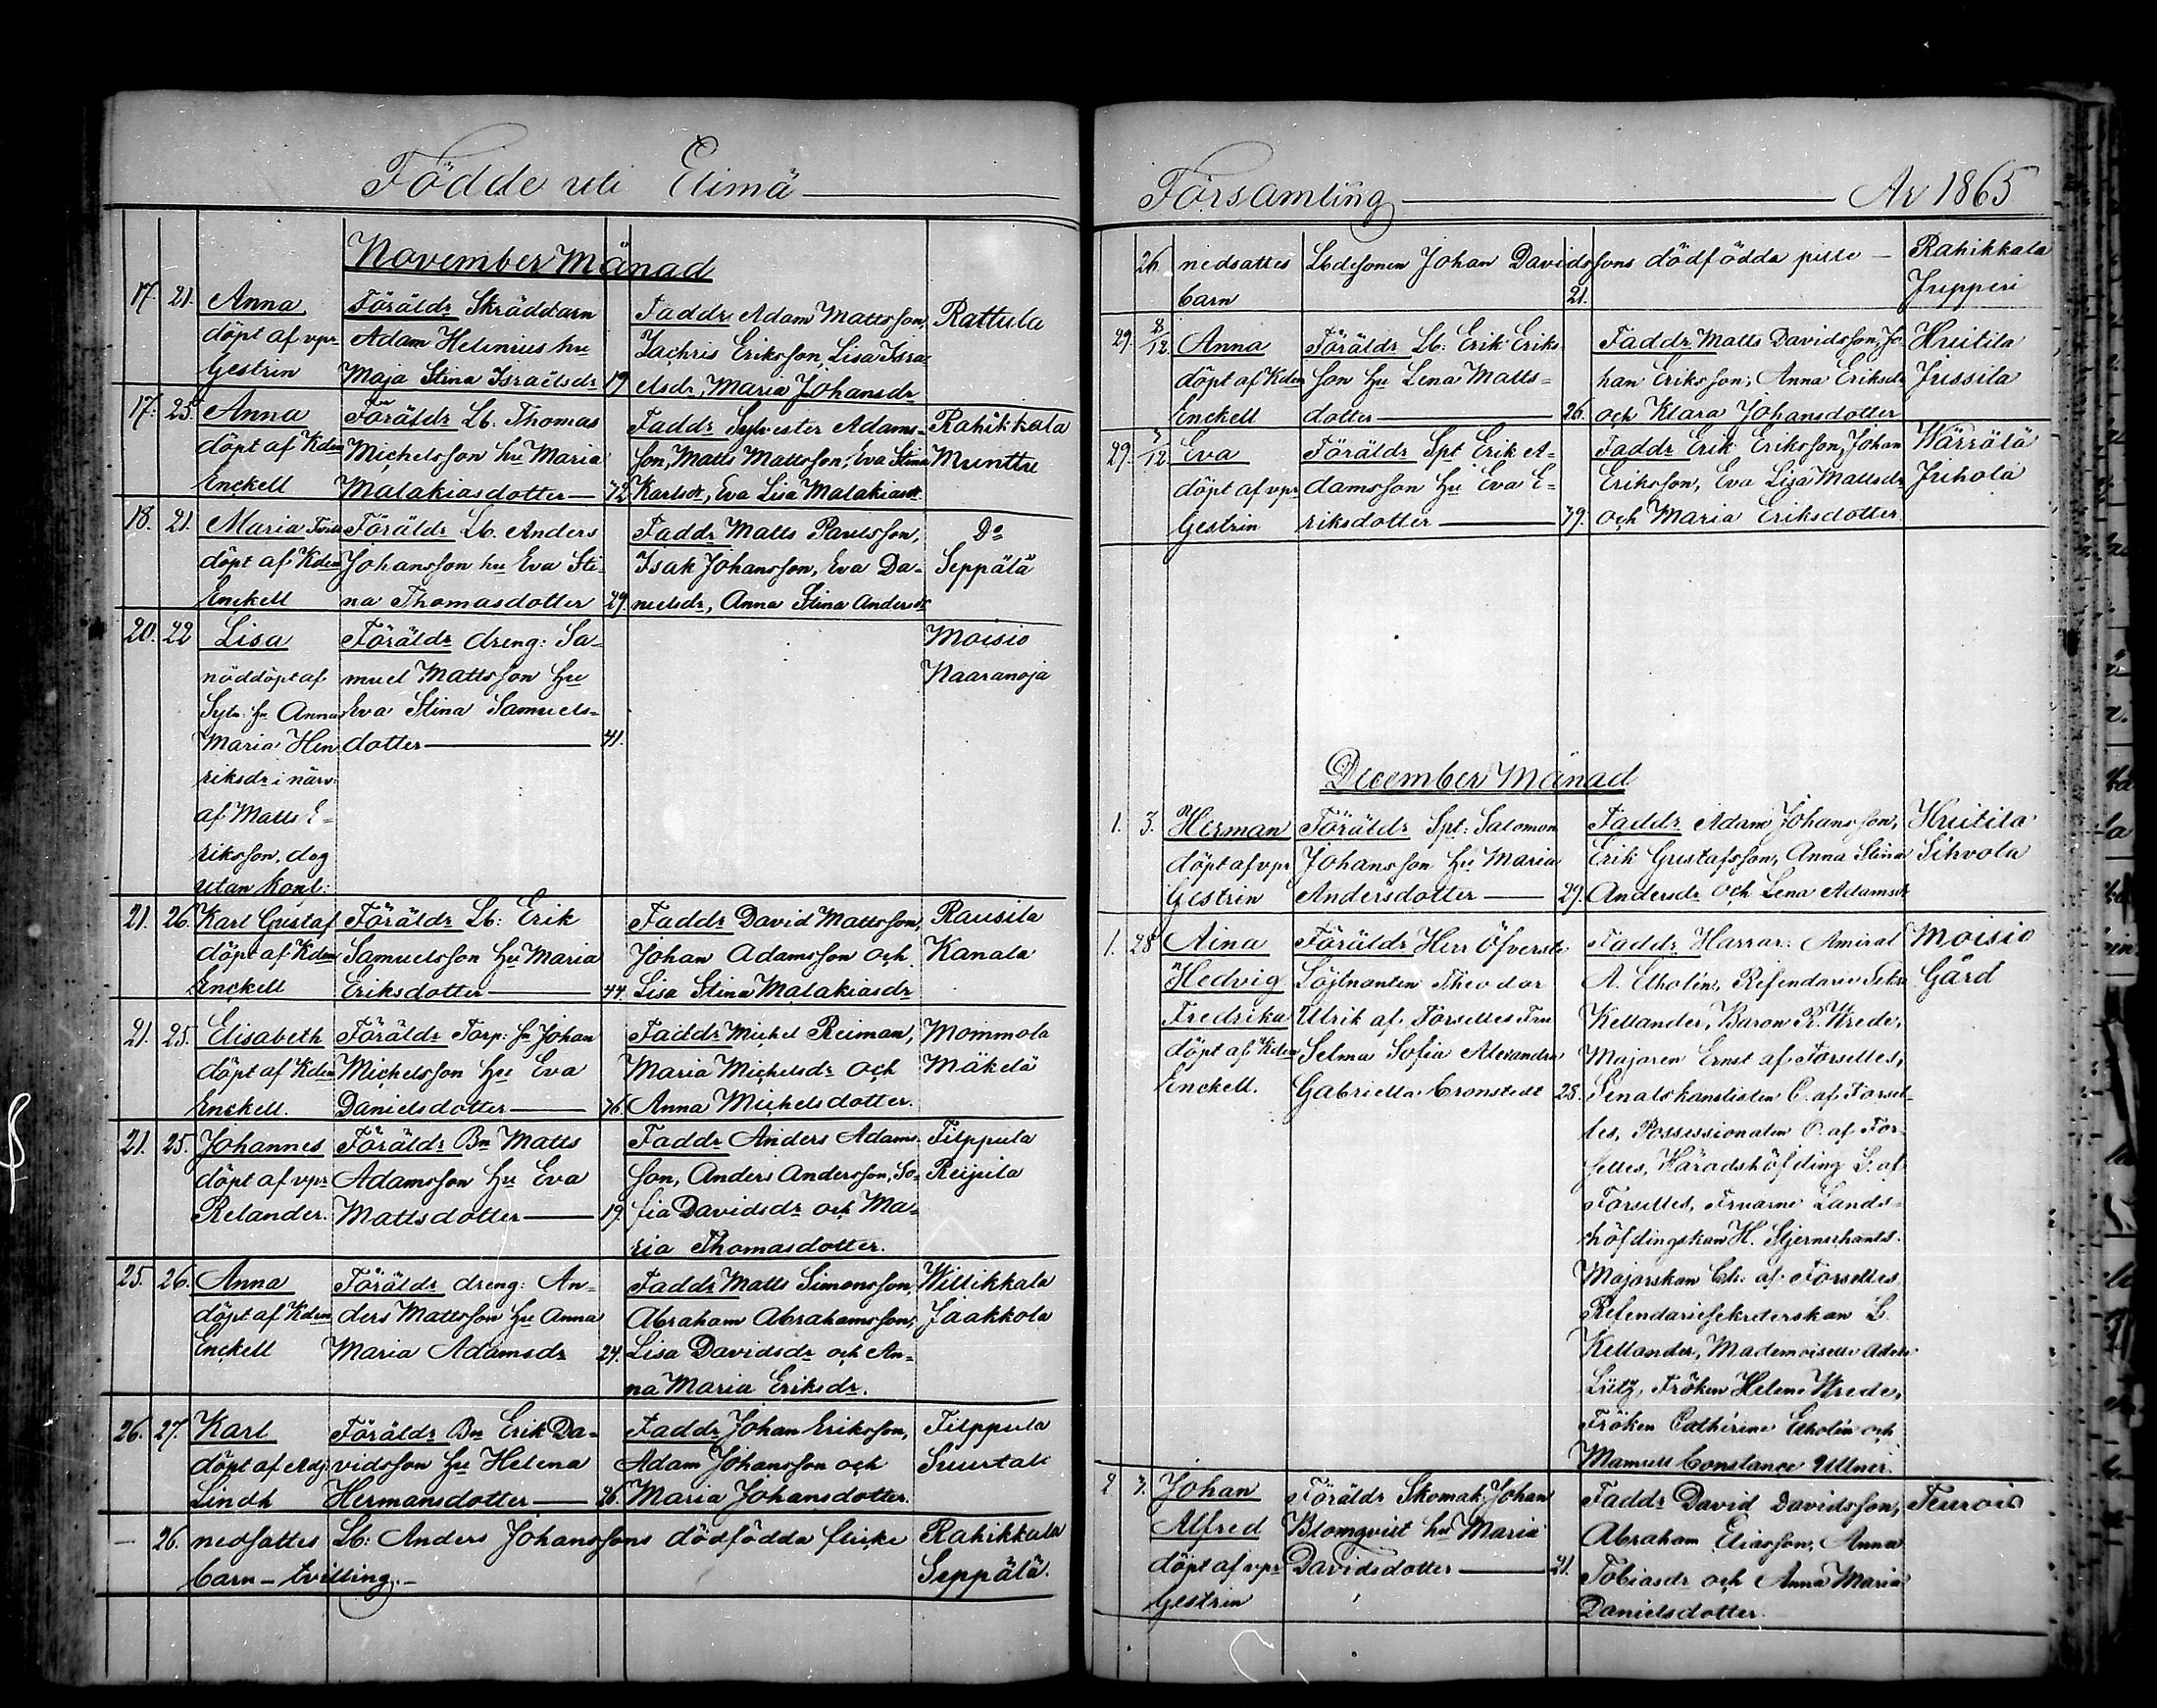 Födde uti Elimä
November Månad
17. 21. Anna Föräldr Skräddarn Faddr Adam Mattsson, Rattula
döpt af vpr Adam Helenius hu Zachris Eriksson, Lisa Isra
Gestrin Maja Stina Israelsdr 19 elsdr, Maria Johansdr
17. 25. Anna Föräldr Lb. Thomas Faddr Sylvester Adams- Rahikkala
döpt af Kden Michelsson hu Maria son, Matts Mattsson, Eva Stina Munttu
Enckell Malakiasdotter 42 Karlsdr, Eva Lisa Malakiasdr
18. 21. Maria Föräldr Lb. Anders Faddr Matts Paulsson, Do
döpt af Kden Johansson hu Eva Sti- Isak Johansson, Eva Da- Seppälä
Enckell na Thomasdotter 29. nielsdr, Anna Stina Andersdr
20. 22 Lisa Föräldr dreng: Sa- Moisio
nöddöpt af muel Mattsson Hu Naaranoja
Sytn: hu Anna Eva Stina Samuels-
Maria Hen dotter 41.
riksdr i närv:
af Matts E-
riksson, dog
utan konf:
21. 26. Karl Gustaf Föräldr Lb: Erik Faddr David Mattsson, Rausila
döpt af Kden Samuelsson Hu Maria Johan Adamsson och Kanala
Enckell Eriksdotter 44. Lisa Stina Malakiasdr
21. 25. Elisabeth Föräldr Torp: Johan Faddr Michel Reiman, Mommola
döpt af Kden Michelsson Hu Eva Maria Michelsdr och Mäkelä
Enckell. Danielsdotter 36. Anna Michelsdotter.
21. 25. Johannes Föräldr Bn Matts Faddr Anders Adams Filppula
döpt af vpr Adamsson Hu Eva son, Anders Andersson, So- Reijula
Relander. Mattsdotter 19. fia Davidsdr och Ma-
ria Thomasdotter.
25. 26. Anna Föräldr dreng: An- Faddr Matts Simonsson, Willikkala
döpt af Kden ders Mattsson Hu Anna Abraham Abrahamsson, Jaakkola
Enckell Maria Adamsdr 24. Lisa Davidsdr och An-
na Maria Eriksdr.
26. 27. Karl Föräldr Bn Erik Da- Faddr Johan Eriksson, Filppula
döpt af Adj vidsson Hu Helena Adam Johansson och Suurtalo
Lindh Hermansdotter 26. Maria Johansdotter.
— 26. nedsattes Lb: Anders Johanssons dödfödda flicke Rahikkala
barn - tvilling. - Seppälä.
Församling Ar 1865
26 nedsattes Lbdesonen Johan Davidssons dödfödda pilte — Rahikkala
barn 21. Jupperi
29. 8/12 Anna Föräldr Lb: Erik Eriks Faddr Matts Davidsson, Jo Huitila
döpt af Kden son Hu Lena Matts- han Eriksson, Anna Eriksdr Jussila
Enckell dotter 26. och Klara Johansdotter
29. 3/12 Eva Föräldr Spt Erik A- Faddr Erik Eriksson, Johan Wärrälä
döpt af vpr damsson Hu Eva E- Eriksson, Eva Lisa Mattsdr Juhola
Gestrin riksdotter 39. och Maria Eriksdotter
December Månad
1. 3. Herman Föräldr Spt: Salomon Faddr Adam Johansson, Huitila
döpt af vpr Johansson Hu Maria Erik Gustafsson, Anna Stina Sihvola
Gestrin Andersdotter 29. Andersdr och Lena Adamsdr
1. 28 Aina Föräldr Herr Öfverste Faddr Herrar: Amiral Moisio
Hedvig Löjtnanten Theodor A. Etholén, Referendarie Sekr Gård
Fredrika Ulrik af Forselles Fru Kellander, Baron R. Wrede,
döpt af Kden Selma Sofia Alexandra Majoren Ernst af Forselles,
Enckell. Gabriella Cronstedt 28. Senatskanslisten C. af Forsel-
les, Possessionaten O. af For-
selles, Häradshöfding L. af
Forselles, Fruarne Lands-
höfdingskan H. Stjernschantz
Majorskan Ch: af Forselles
Referendariesekreterskan L.
Kellander, Mademoiselle Adele
Lütz, Fröken Helene Wrede,
Fröken Cathérine Etholén och
Mamsell Constance Ullner.
2 3. Johan Föräldr Skomak. Johan Faddr David Davidsson, Teurois
Alfred Blomqvist hu Maria Abraham Eliasson, Anna
döpt af vpr Davidsdotter 21. Tobiasdr och Anna Maria
Gestrin Danielsdotter.